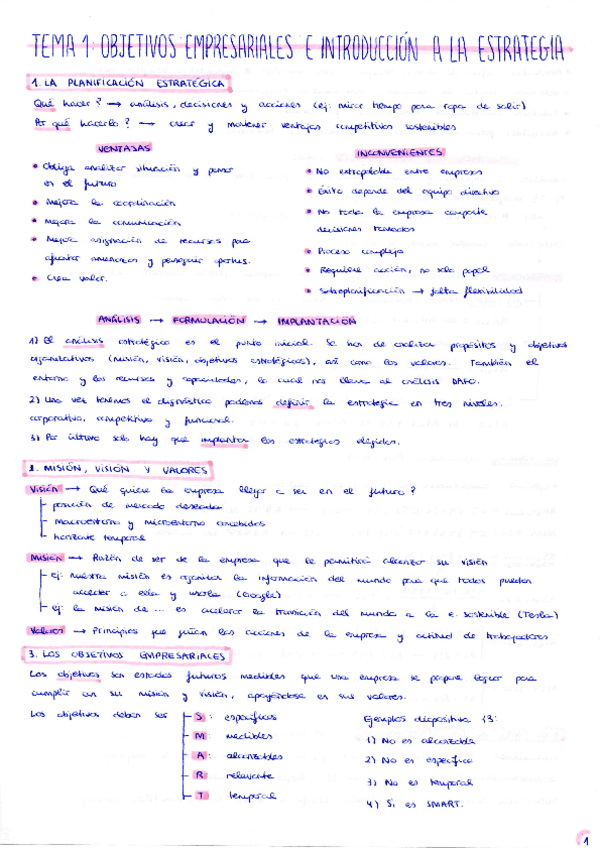 TEMA 1: OBJETIVOS EMPRESARIALES E INTRODUCCIÓN A LA ESTRATEGIA
1. LA PLANIFICACIÓN ESTRATÉGICA
Qué hacer? → análisis, decisiones y acciones (ej: mirar tiempo para ropa de salir)
Por qué hacerlo? → crear y mantener ventajas competitivas sostenibles
VENTAJAS
• Obliga analizar situación y pensar
en el futuro
• Mejora la coordinación
• Mejora la comunicación
• Mejor asignación de recursos para
ajustar amenazas y perseguir optus.
• Crea valor.
INCONVENIENTES
• No extrapolable entre empresas
• Éxito depende del equipo directivo
• No toda la empresa comparte
decisiones tomadas
• Proceso complejo
• Requiere acción, no solo papel
• Sobreplanificación → falta flexibilidad
ANÁLISIS → FORMULACIÓN → IMPLANTACIÓN
1) El análisis estratégico es el punto inicial. Se han de analizar propósitos y objetivos
organizativos (misión, visión, objetivos estratégicos), así como los valores. También el
entorno y los recursos y capacidades, lo cual nos lleva al análisis DAFO.
2) Una vez tenemos el diagnóstico podemos definir la estrategia en tres niveles:
corporativo, competitivo y funcional.
3) Por último solo hay que implantar las estrategias elegidas.
2. MISIÓN, VISIÓN Y VALORES
Visión → Qué quiere la empresa llegar a ser en el futuro?
posición de mercado deseada
macroentorno y microentorno
horizonte temporal
Misión → Razón de ser de la empresa que le permitirá alcanzar su visión
ej: nuestra misión es organizar la información del mundo para que todos puedan
acceder a ella y usarla (Google)
ej: la misión de ... es acelerar la transición del mundo a la e. sostenible (Tesla)
Valores → Principios que guían las acciones de la empresa y actitud de trabajadores
3. LOS OBJETIVOS EMPRESARIALES
Los objetivos son estados futuros medibles que una empresa se propone lograr para
cumplir con su misión y visión, apoyándose en sus valores.
Los objetivos deben ser
S: específicos
M: medibles
A: alcanzables
R: relevante
T: temporal
Ejemplos diapositiva 13:
1) No es alcanzable
2) No es específico
3) No es temporal
4) Sí es SMART.
1